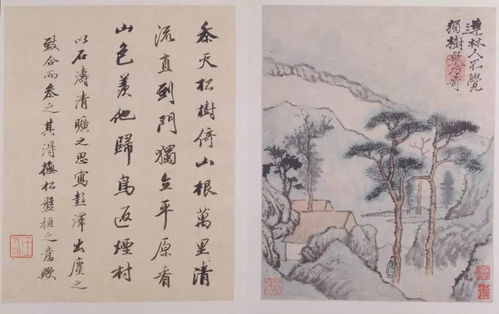 連林人不覺
獨樹衆乃奇
參天松樹倚山根萬里清
流直到門獨立平原看
山色羨他歸鳥返煙村
以石濤清曠之思寫彭澤出塵之
致合而參之其得撫松盤桓之意歟